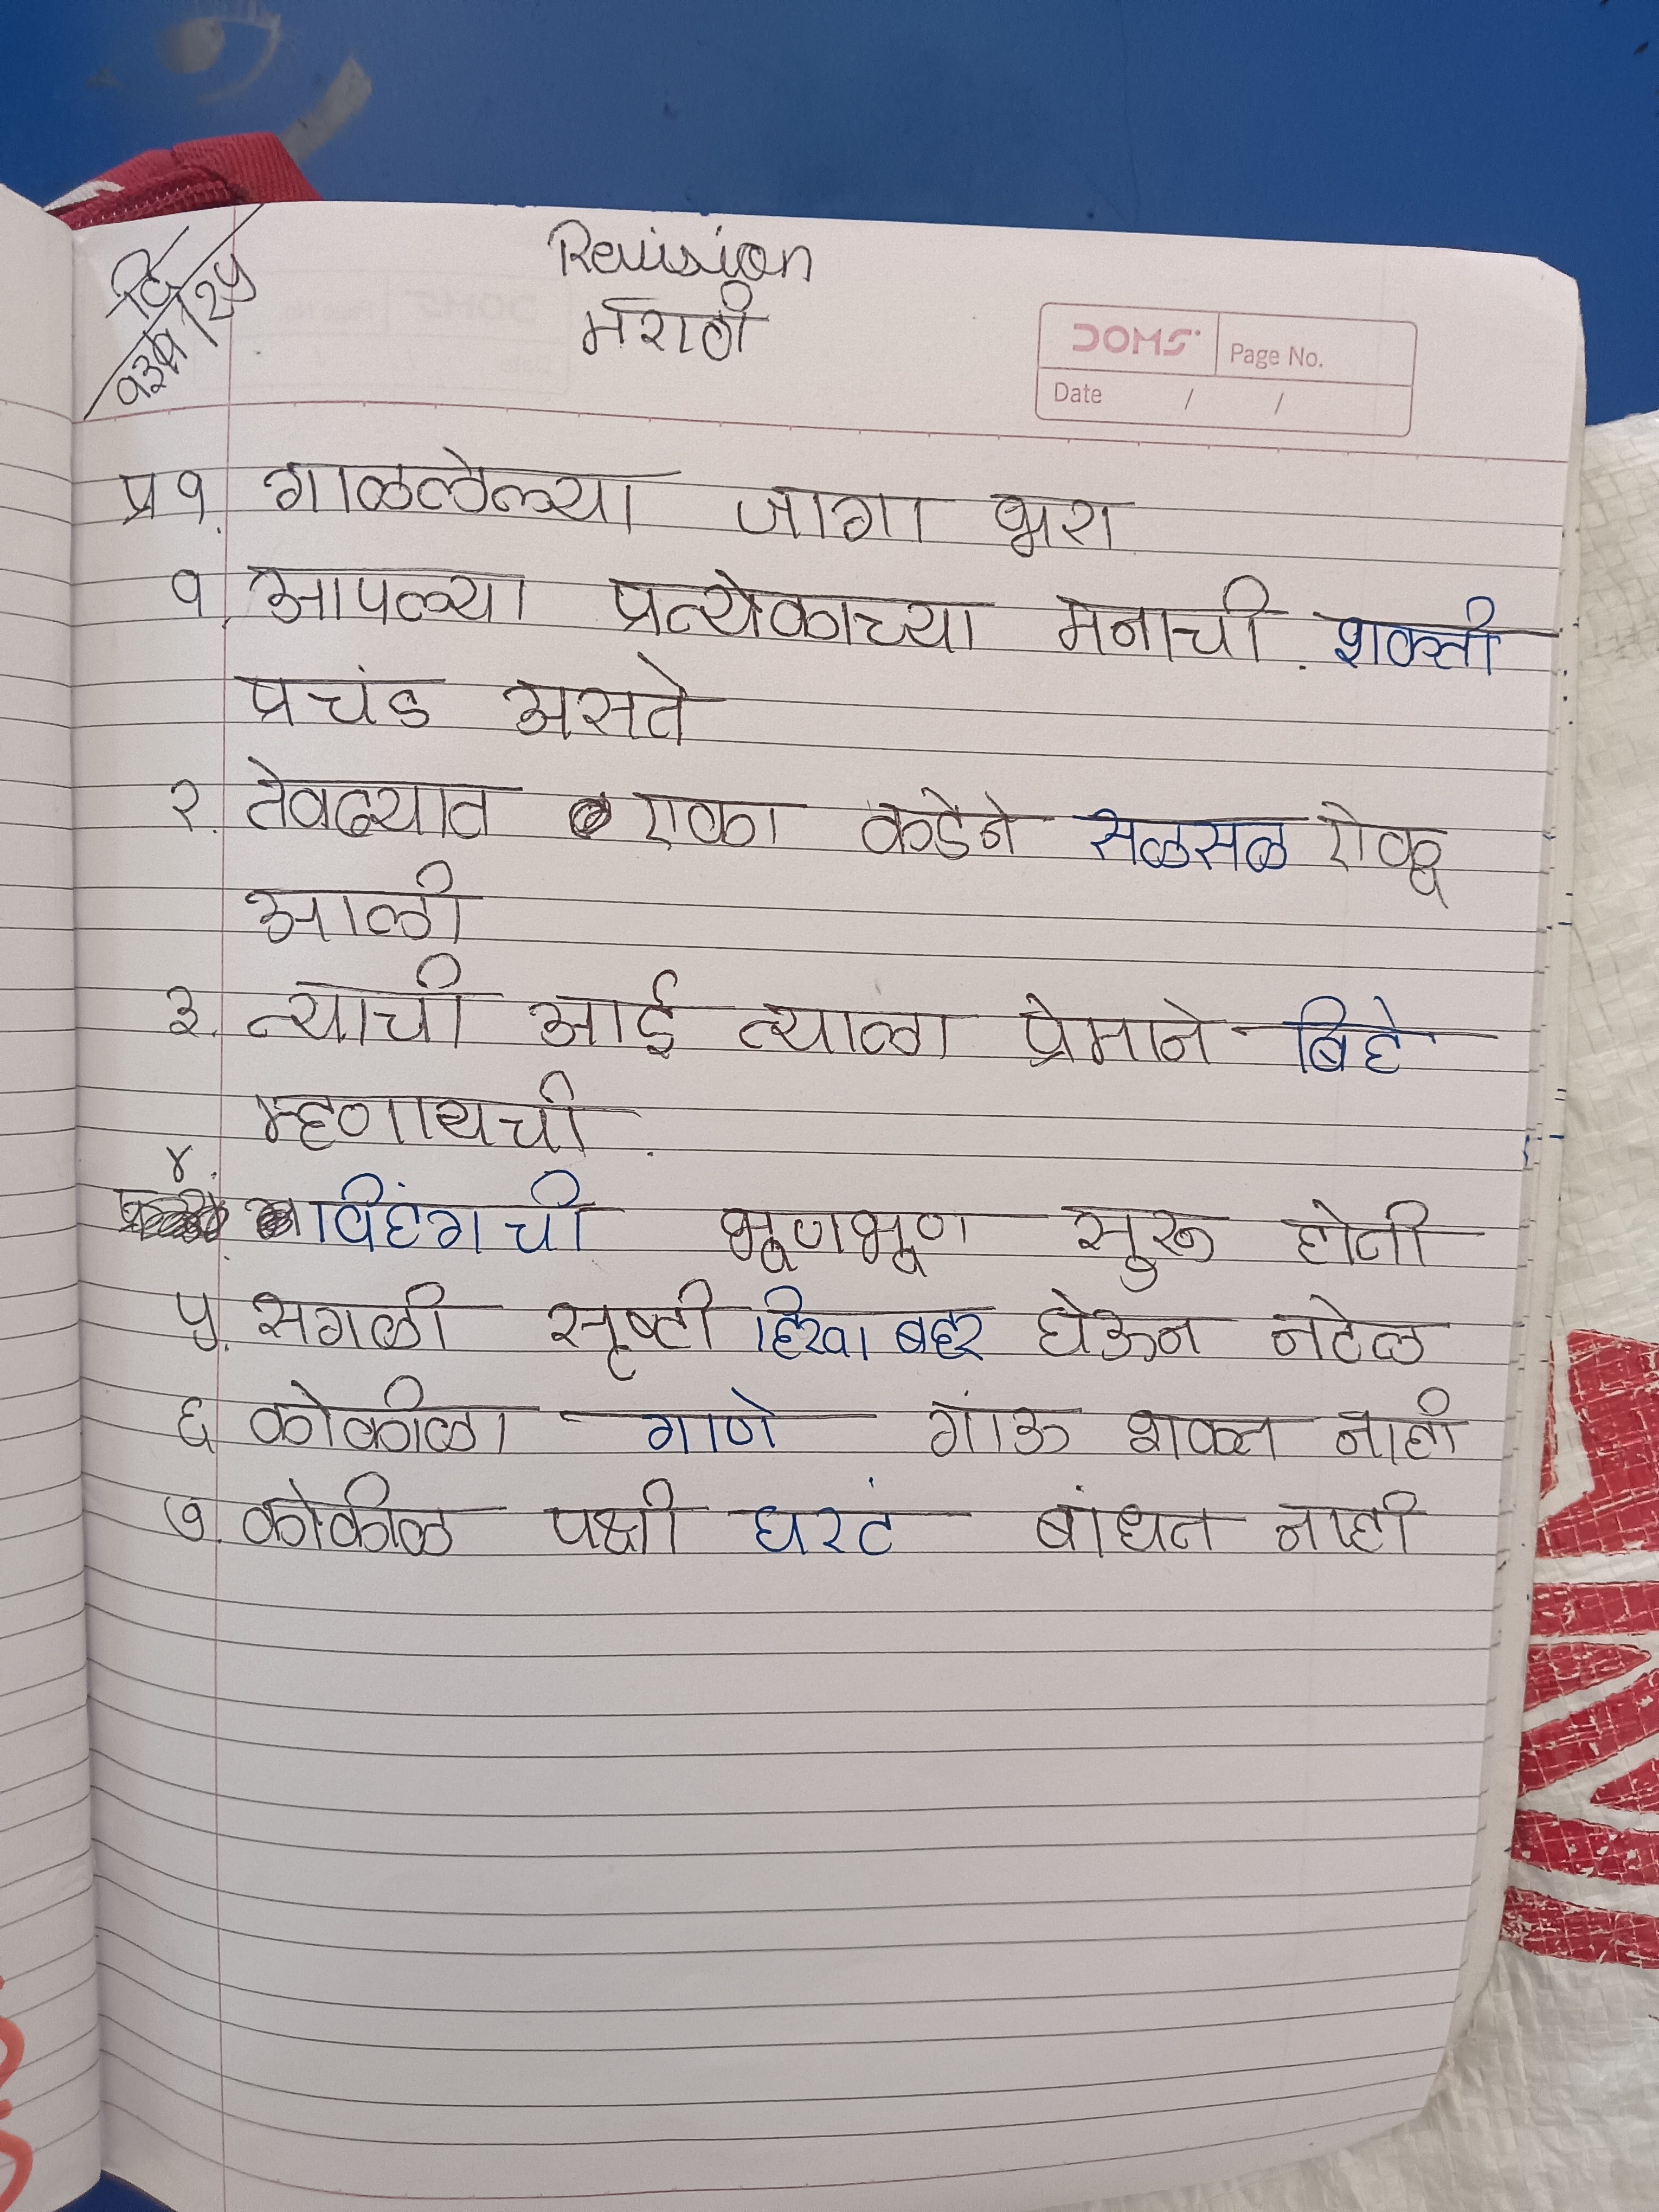 दि
Revision
मराठी
DOMS Page No.
Date / /
प्र १. गाळलेल्या जागा भरा
१. आपल्या प्रत्येकाच्या मनाची. शक्ती
प्रचंड असते
२. तेवढ्यात एका कडेने सळसळ ऐकू
आली
३. त्याची आई त्याला प्रेमाने बिहे
म्हणायची.
४.
विहंगाची भूणभूण सुरू होती
५. सगळी सृष्टी हिरवा बहर घेऊन नटेल
६ कोकीळा गाणे गांऊ शकत नाही
७. कोकीळ पक्षी घरटं बांधत नाही